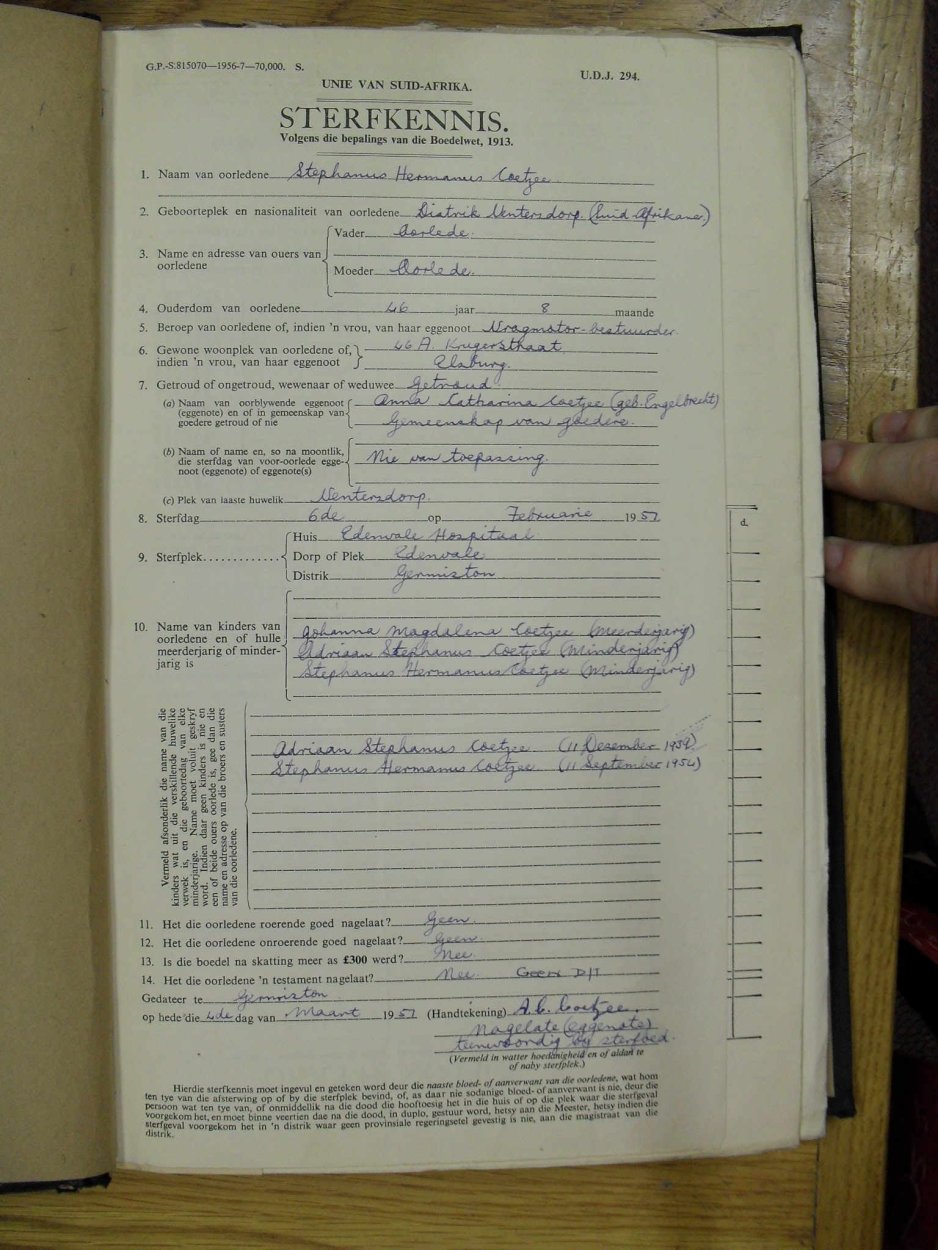 G.P.-S.815070—1956-7—70,000. S.
U.D.J. 294.
UNIE VAN SUID-AFRIKA.
STERFKENNIS.
Volgens die bepalings van die Boedelwet, 1913.
1. Naam van oorledene Stephanus Hermanus Coetzee.
2. Geboorteplek en nasionaliteit van oorledene Distrik Ventersdorp. (Suid Afrikaner)
3. Name en adresse van ouers van oorledene
Vader Oorlede.
Moeder Oorlede.
4. Ouderdom van oorledene 46 jaar 8 maande
5. Beroep van oorledene of, indien 'n vrou, van haar eggenoot Vragmotor-bestuurder
6. Gewone woonplek van oorledene of, 46 A. Krugerstraat
indien 'n vrou, van haar eggenoot Elsburg.
7. Getroud of ongetroud, wewenaar of weduwee Getroud.
(a) Naam van oorblywende eggenoot Anna Catharina Coetzee (geb. Engelbrecht)
(eggenote) en of in gemeenskap van
goedere getroud of nie Gemeenskap van goedere.
(b) Naam of name en, so na moontlik,
die sterfdag van voor-oorlede egge- Nie van toepassing.
noot (eggenote) of eggenote(s)
(c) Plek van laaste huwelik Ventersdorp.
8. Sterfdag 6de op Februarie 1957
9. Sterfplek............
Huis Edenvale Hospitaal
Dorp of Plek Edenvale
Distrik Germiston
10. Name van kinders van
oorledene en of hulle Johanna Magdalena Coetzee (Meerderjarig)
meerderjarig of minder- Adriaan Stephanus Coetzee (Minderjarig)
jarig is Stephanus Hermanus Coetzee (Minderjarig)
Vermeld afsonderlik die name van die
kinders wat uit die verskillende huwelike
verwek is, en die geboortedag van elke
minderjarige. Name moet voluit geskryf
word. Indien daar geen kinders is nie en
een of beide ouers oorlede is, gee dan die
name en adresse op van die broers en susters
van die oorledene.
Adriaan Stephanus Coetzee (11 Desember
Stephanus Hermanus Coetzee (11 September 1954)
d.
11. Het die oorledene roerende goed nagelaat? Geen.
12. Het die oorledene onroerende goed nagelaat? Geen.
13. Is die boedel na skatting meer as £300 werd? Nee.
14. Het die oorledene 'n testament nagelaat? Nee. Geen
Gedateer te Germiston
op hede die 4de dag van Maart 1957 (Handtekening) A.C. Coetzee.
Nagelate (eggenote)
teenwoordig by sterfbed.
(Vermeld in watter hoedanigheid en of aldan te
of naby sterfplek.)
Hierdie sterfkennis moet ingevul en geteken word deur die naaste bloed- of aanverwant van die oorledene, wat hom
ten tye van die afsterwing op of by die sterfplek bevind, of, as daar nie sodanige bloed- of aanverwant is nie, deur die
persoon wat ten tye van, of onmiddellik na die dood die hooftoesig het in die huis of op die plek waar die sterfgeval
voorgekom het, en moet binne veertien dae na die dood, in duplo, gestuur word, hetsy aan die Meester, hetsy indien die
sterfgeval voorgekom het in 'n distrik waar geen provinsiale regeringsetel gevestig is nie, aan die magistraat van die
distrik.